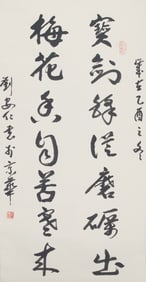 歲在乙酉之冬
寶劍鋒從磨礪出
梅花香自苦寒來
劉安仁書於京華